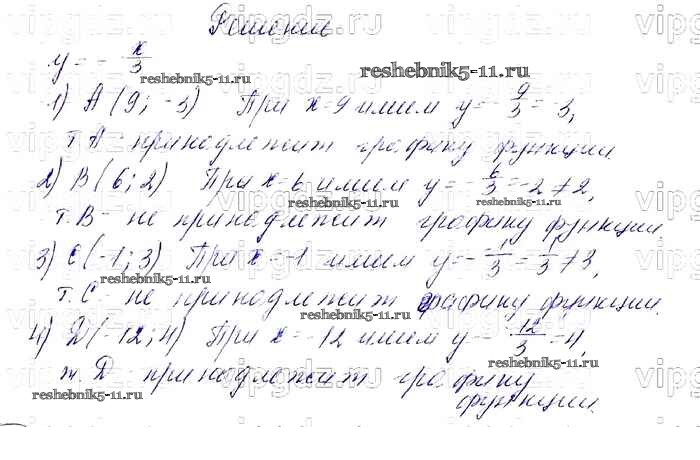 Решение
y = - x/3
reshebnik5-11.ru
reshebnik5-11.ru
1) A (9; -3) При x=9 имеем y=-9/3=-3,
т. A - принадлежит графику функции.
2) B (6; 2) При x=6 имеем y=-6/3=-2≠2,
reshebnik5-11.ru
reshebnik5-11.ru
т. B - не принадлежит графику функции.
3) C (-1; 3) При x=-1 имеем y=-1/3=1/3≠3,
reshebnik5-11.ru
т. C - не принадлежит графику функции.
reshebnik5-11.ru
4) D (-12; 4) При x=-12 имеем y=--12/3=4,
reshebnik5-11.ru
т. D - принадлежит графику
reshebnik5-11.ru
функции.
vipgdz.ru vipgdz.ru vipgdz.ru vipgdz.ru